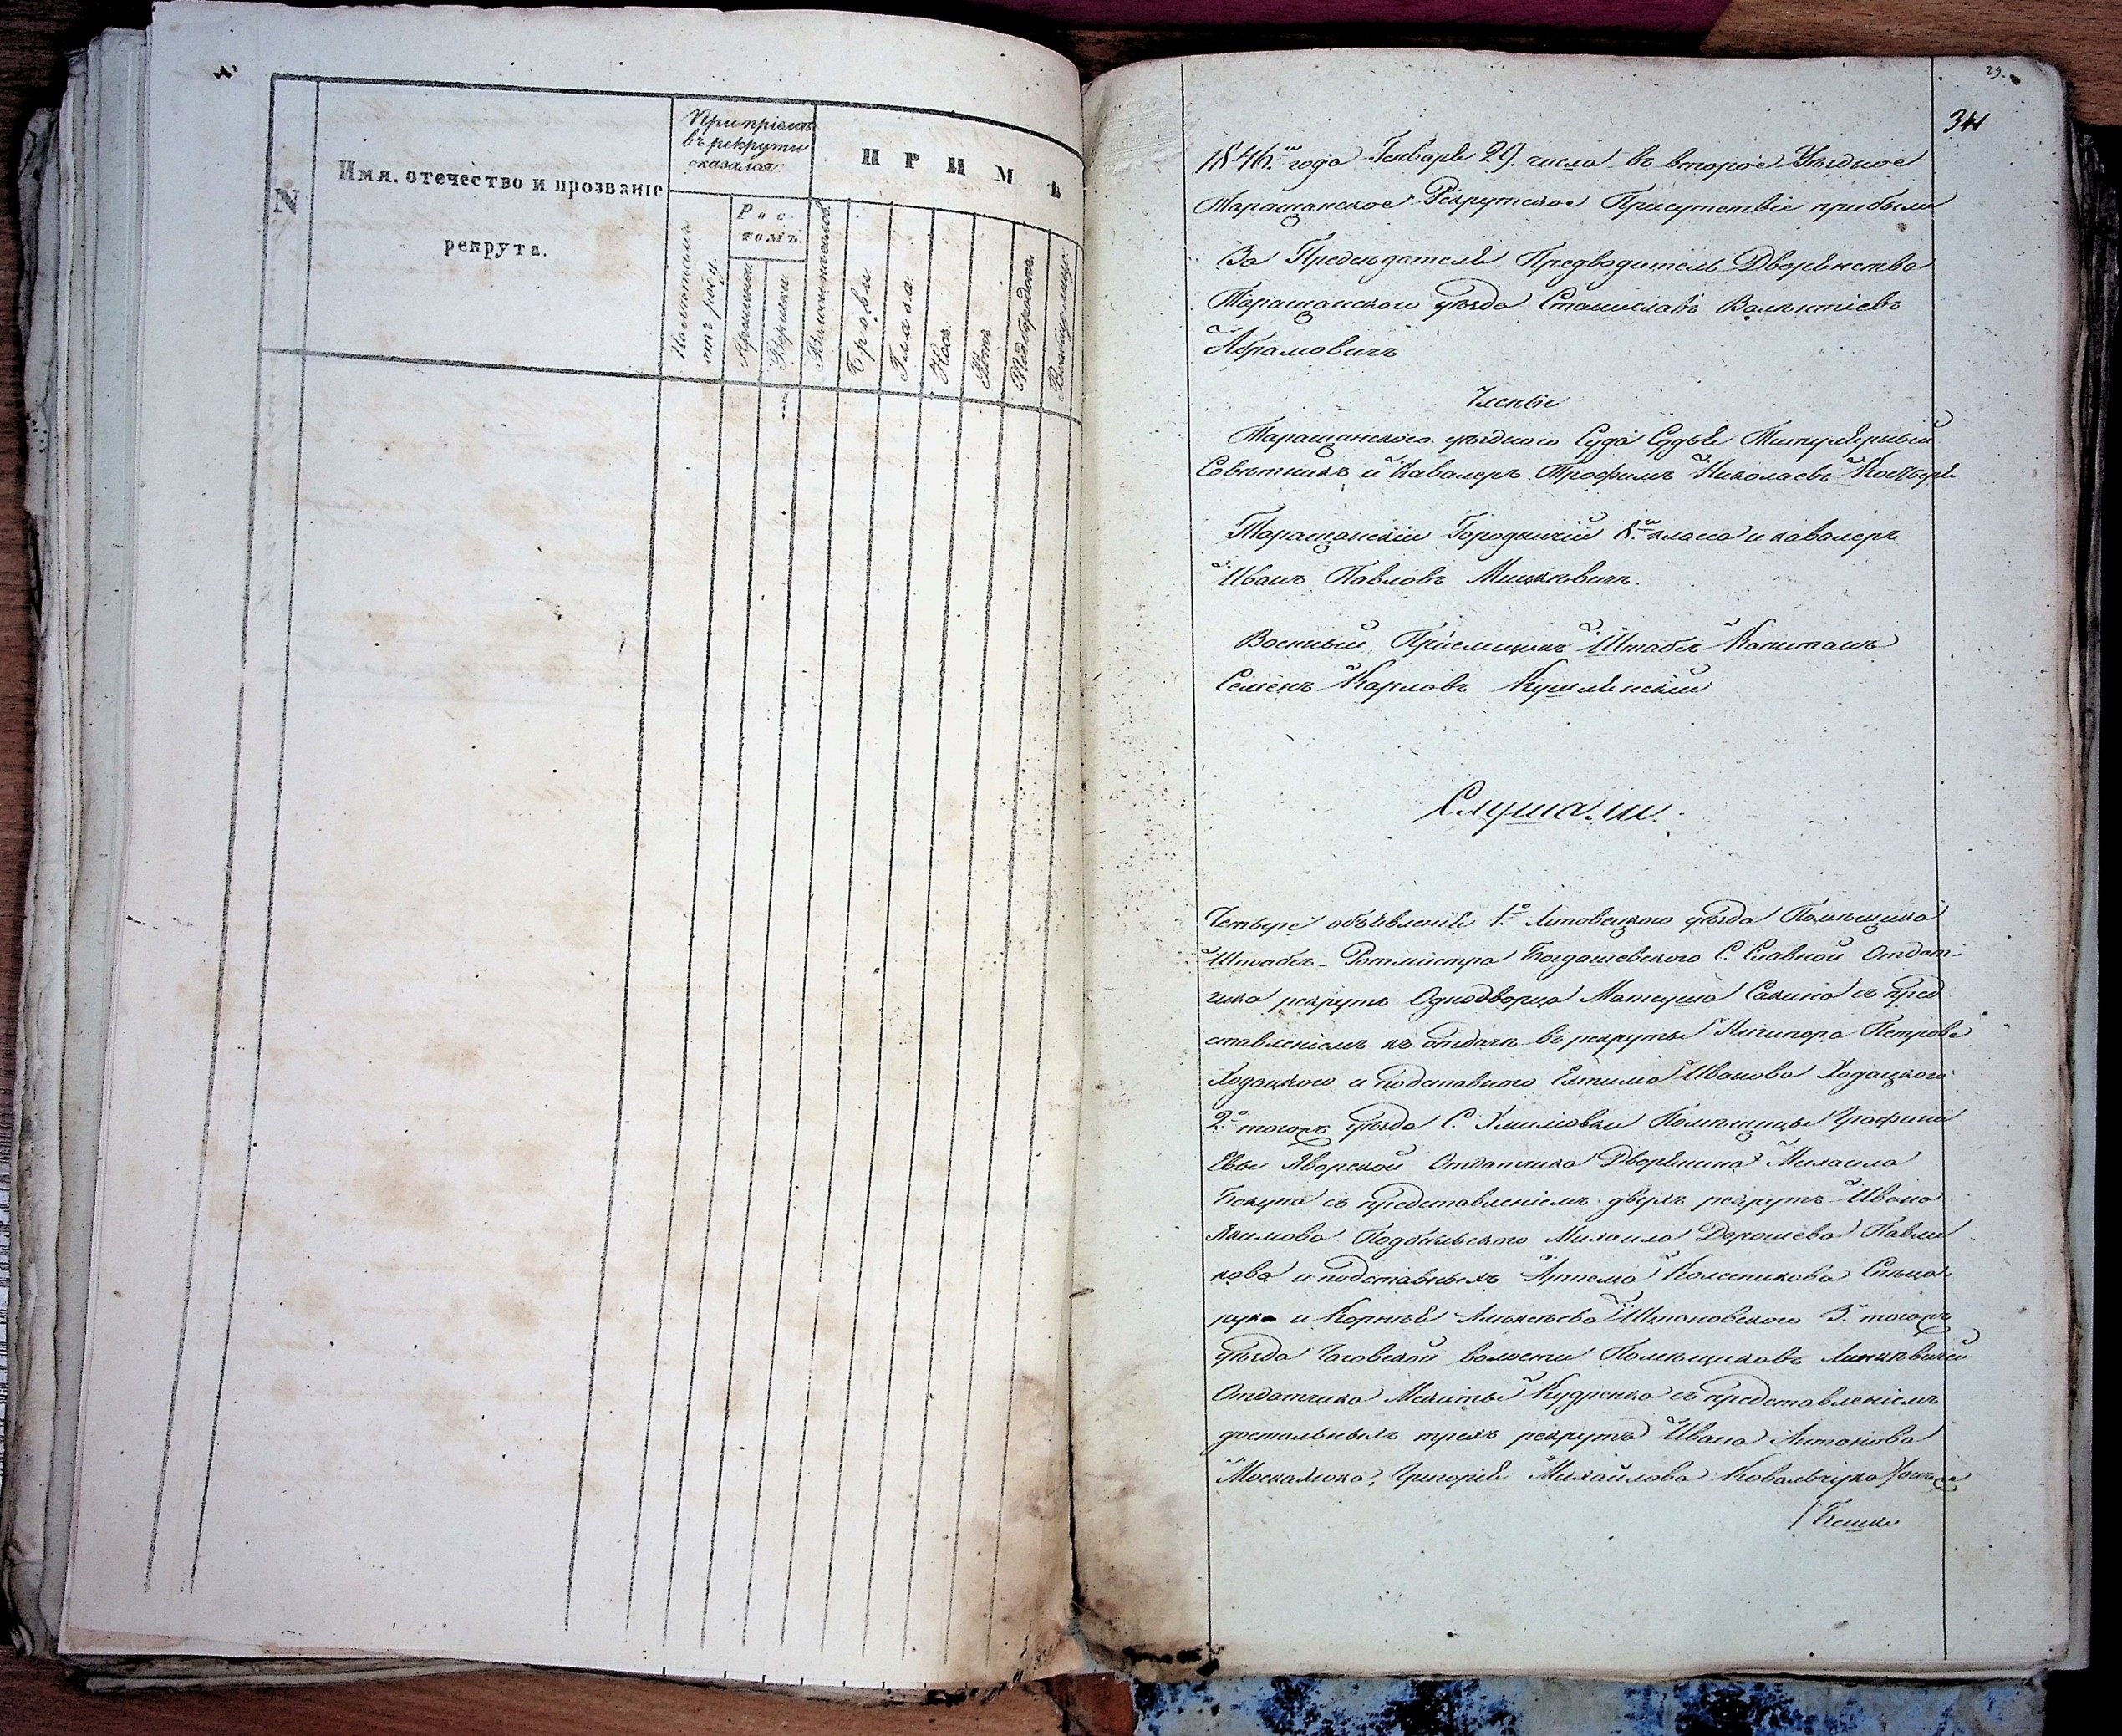 N
Имя, отечество и прозваніе
рекрута.
При пріемѣ
въ рекруты
оказался:
ПРИМѢ
Рос-
томъ.
отъ роду.
Аршины
Вершки
Брови
Глаза.
Носъ
Ротъ
Подбородокъ
29.
34
1846.го года Генваря 29. числа въ второе Уѣздное
Таращанское Рекрутское Присутствіе прибыли
За Предсѣдателя Предводитель Дворянства
Таращанскои уѣзда Станиславъ
Абрамовичъ
Члены
Таращанского уѣздного Суда Судья Титулярный
Совѣтникъ и Кавалеръ Трофимъ Николаевъ
Таращанскій Городничій 8.го класса и кавалеръ
Иванъ Павловъ Мицкевичъ.
Военный Пріемщикъ Штабсъ Капитанъ
Семенъ Карловъ
Слушали.
Четыре объявленія 1.е Липовецкого уѣзда Помѣщика
Штабсъ-Ротмистра Богдашевского С. Славной Отдат-
чика рекрутъ Однодворца Матеуша Савина съ пред
ставленіемъ къ отдачѣ въ рекруты Ничипора Петрова
Ходацкого и подставного Ехтима Иванова Ходацкого
2.е тогожъ уѣзда С. Помѣщицы Графини
Евы Яворской Отдатчика Дворянина Михаила
съ представленіемъ двухъ рекрутъ Ивана
Якимова Михаила Дорошева Павли
кова и подставныхъ Артема Колесникова
рука и Корнѣя Алексѣева 3.е тогожъ
уѣзда волости Помѣщиковъ
Отдатчика Микиты Кудренка съ представленіемъ
достальныхъ трехъ рекрутъ Ивана Антонова
Москалюка, Григорія Михайлова Ковальчука